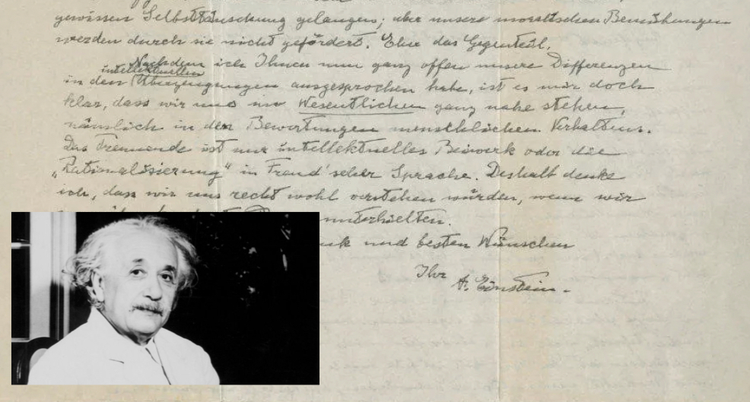 gewissen Selbsttäuschung gelangen; aber unsere moralischen Bemühungen
werden durch sie nicht gefördert. Eher das Gegenteil.
Nachdem ich Ihnen nun ganz offen unsere Differenzen
in den intellektuellen Überzeugungen ausgesprochen habe, ist es mir doch
klar, dass wir uns im Wesentlichen ganz nahe stehen,
nämlich in den Bewertungen menschlichen Verhaltens.
Das Trennende ist nur intellektuelles Beiwerk oder die
„Rationalisierung" in Freud'scher Sprache. Deshalb denke
ich, dass wir uns recht wohl verstehen würden, wenn wir
unterhielten.
und besten Wünschen
Ihr
A. Einstein.